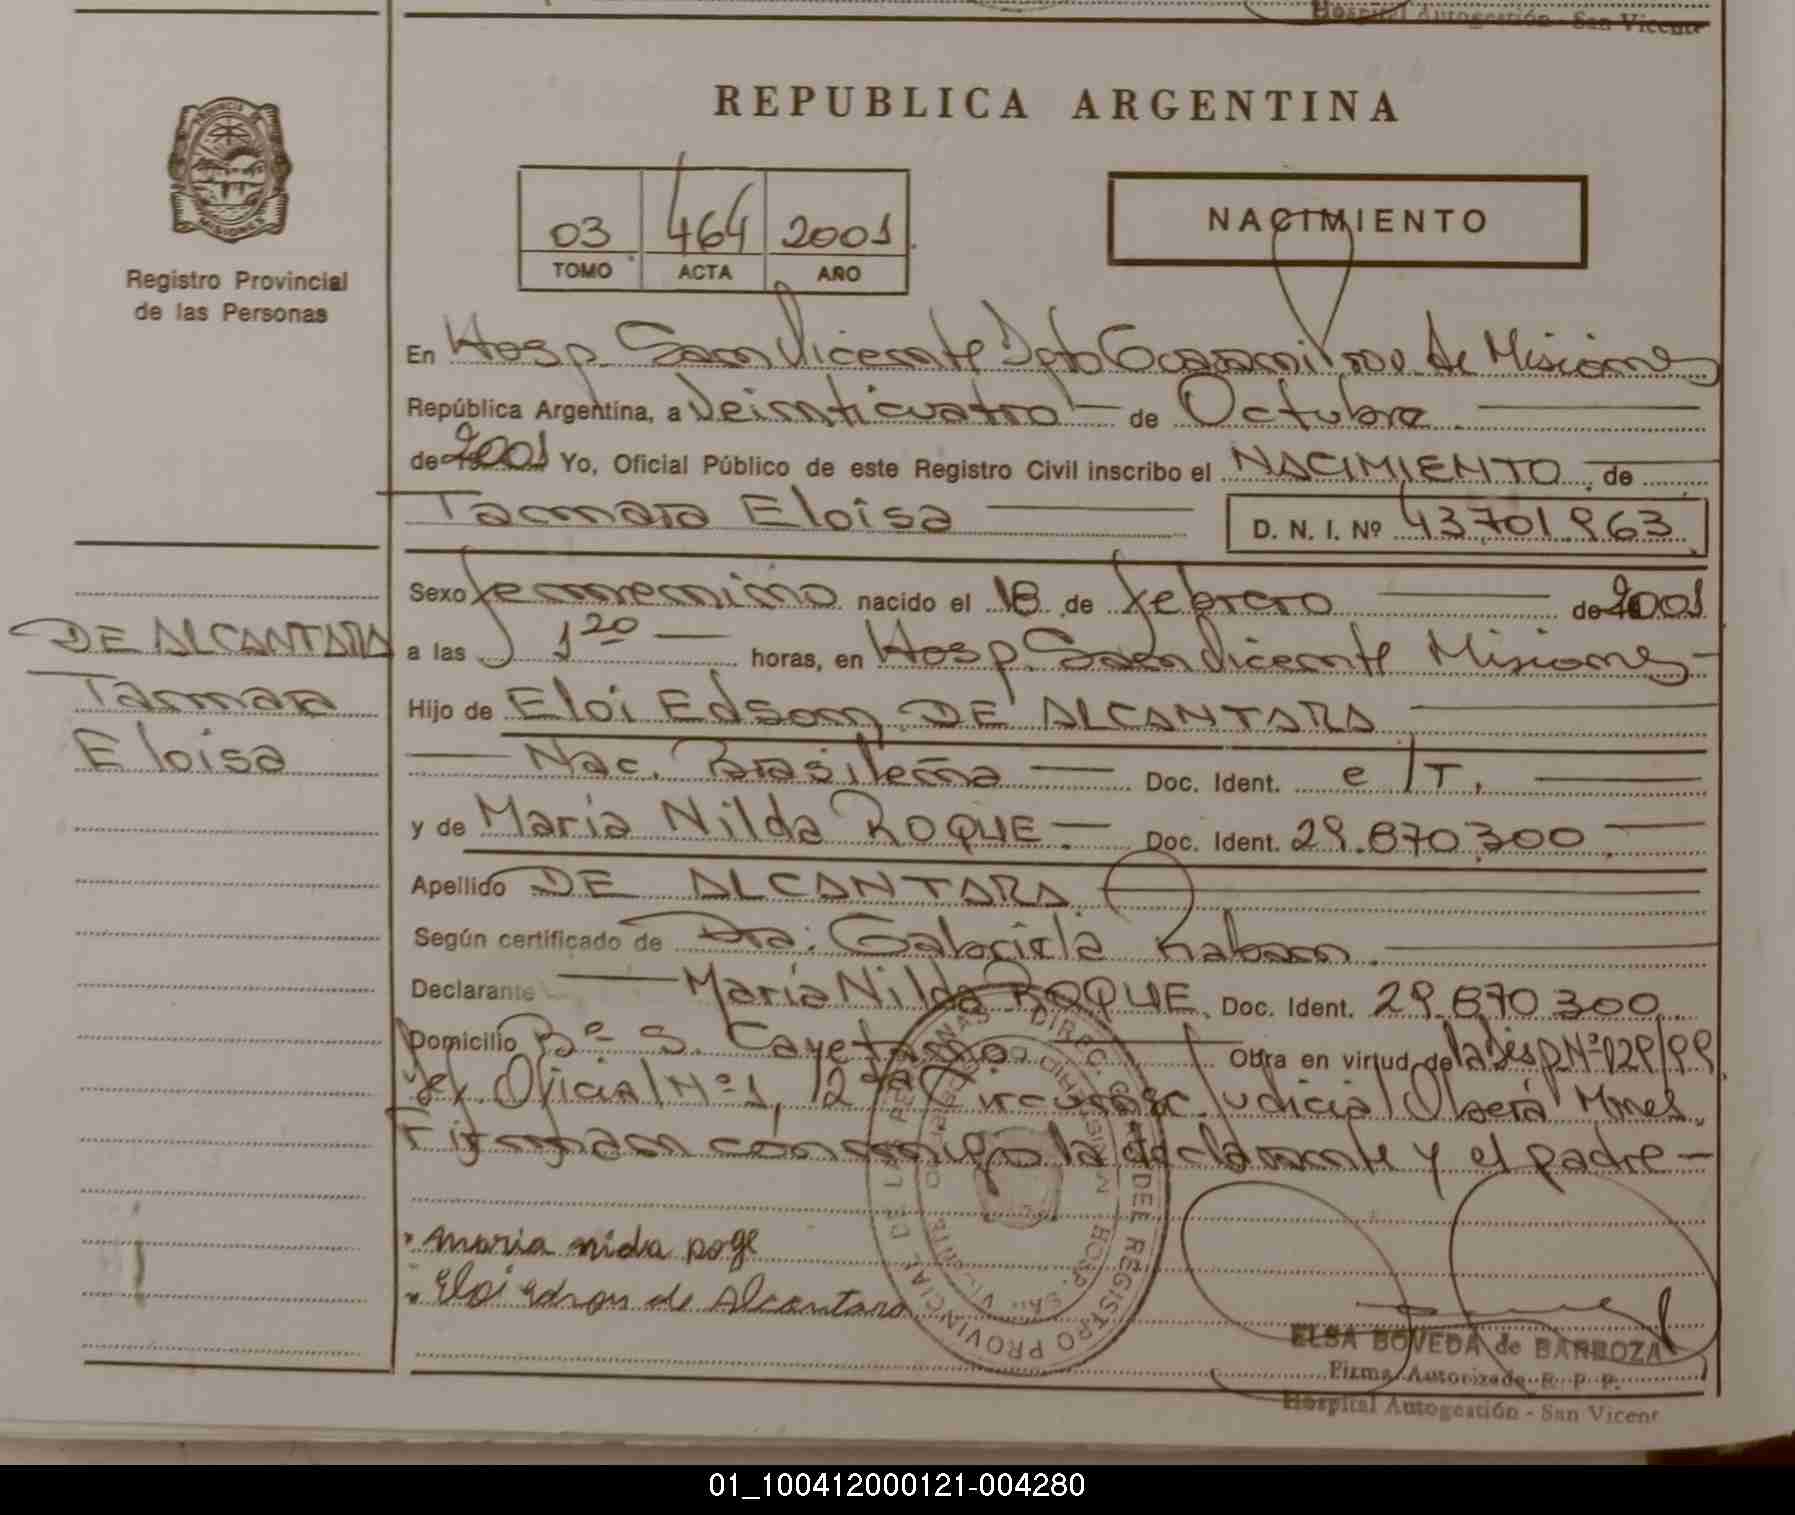 Hospital Autogestión - San Vicente
PROVINCIA DE
MISIONES
Registro Provincial
de las Personas
REPUBLICA ARGENTINA
03 464 2001
TOMO ACTA AÑO
NACIMIENTO
En Hosp. San Vicente Dpto Guarani Prov. de Misiones
República Argentina, a Veinticuatro de Octubre
de 2001 Yo, Oficial Público de este Registro Civil inscribo el NACIMIENTO de
Tamara Eloisa D. N. I. Nº 43701.963
Sexo femenino nacido el 18 de febrero de 2001
a las 1 20 horas, en Hosp. San Vicente Misiones
Hijo de Eloi Edson DE ALCANTARA
Nac. Brasileña Doc. Ident. e/T.
y de Maria Nilda ROQUE. Doc. Ident. 29.870.300
Apellido DE ALCANTARA
Según certificado de Dra. Gabriela Raban.
Declarante María Nilda ROQUE. Doc. Ident. 29.870.300.
Domicilio Bº S. Cayetano Obra en virtud de la Disp Nº 129/99
Oficial Nº 1, 2da Circunscr. Judicial Oberá Mnes.
Firman conmigo la declarante y el padre
maria nida poge
Eloi edson de Alcantara
DE ALCANTARA
Tamara
Eloisa
DIREC. GRAL. DEL REGISTRO PROVINCIAL DE LAS PERSONAS
HOSP. SAN VICENTE
ELSA BOVEDA de BARBOZA
Firma Autorizada R. P. P.
Hospital Autogestión - San Vicent
01_100412000121-004280